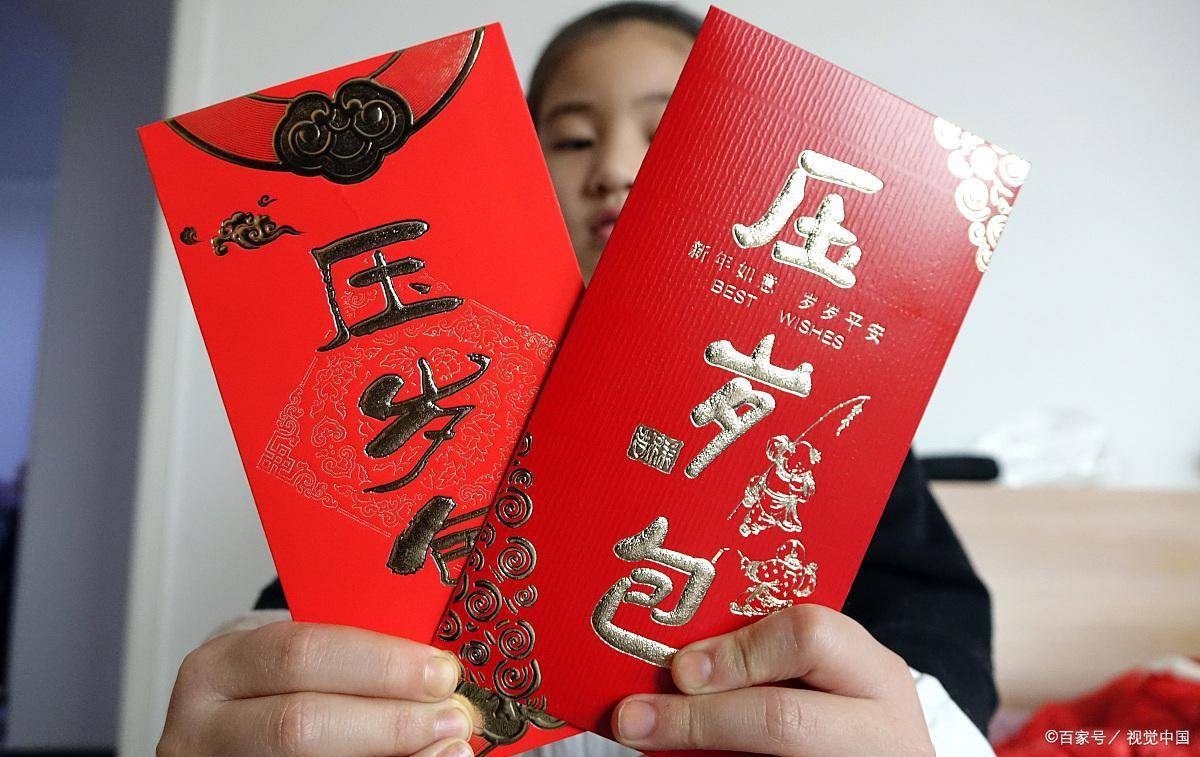 压岁包
压岁包
新年如意 岁岁平安
BEST WISHES
©百家号／视觉中国